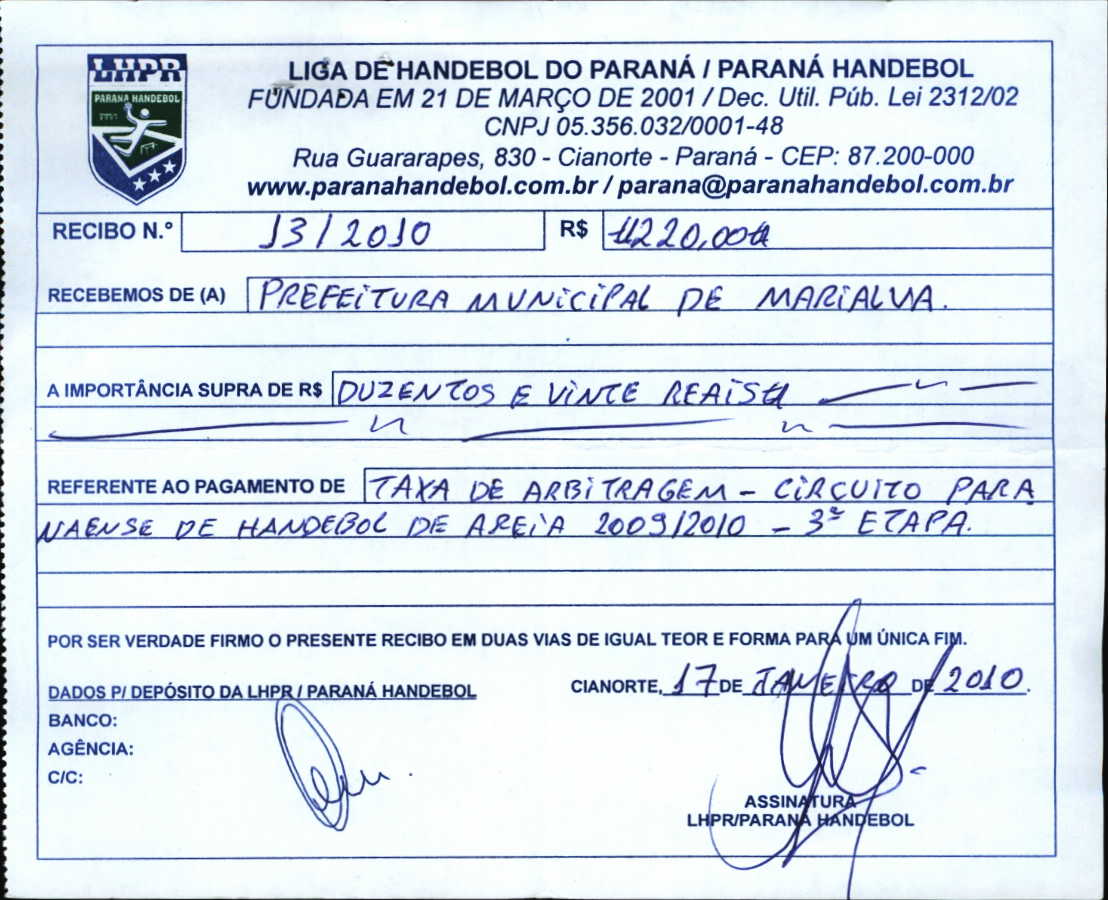 LHPR
PARANÁ HANDEBOL
LIGA DE HANDEBOL DO PARANÁ / PARANÁ HANDEBOL
FUNDADA EM 21 DE MARÇO DE 2001 / Dec. Util. Púb. Lei 2312/02
CNPJ 05.356.032/0001-48
Rua Guararapes, 830 - Cianorte - Paraná - CEP: 87.200-000
www.paranahandebol.com.br / parana@paranahandebol.com.br
RECIBO N.º 13/2010 R$ 220,00
RECEBEMOS DE (A) PREFEITURA MUNICIPAL DE MARIALVA.
A IMPORTÂNCIA SUPRA DE R$ DUZENTOS E VINTE REAIS
REFERENTE AO PAGAMENTO DE TAXA DE ARBITRAGEM - CIRCUITO PARA
NAENSE DE HANDEBOL DE AREIA 2009/2010 - 3ª ETAPA.
POR SER VERDADE FIRMO O PRESENTE RECIBO EM DUAS VIAS DE IGUAL TEOR E FORMA PARA UM ÚNICA FIM.
CIANORTE, 17 DE JANEIRO DE 2010.
DADOS P/ DEPÓSITO DA LHPR / PARANÁ HANDEBOL
BANCO:
AGÊNCIA:
C/C:
ASSINATURA
LHPR/PARANÁ HANDEBOL